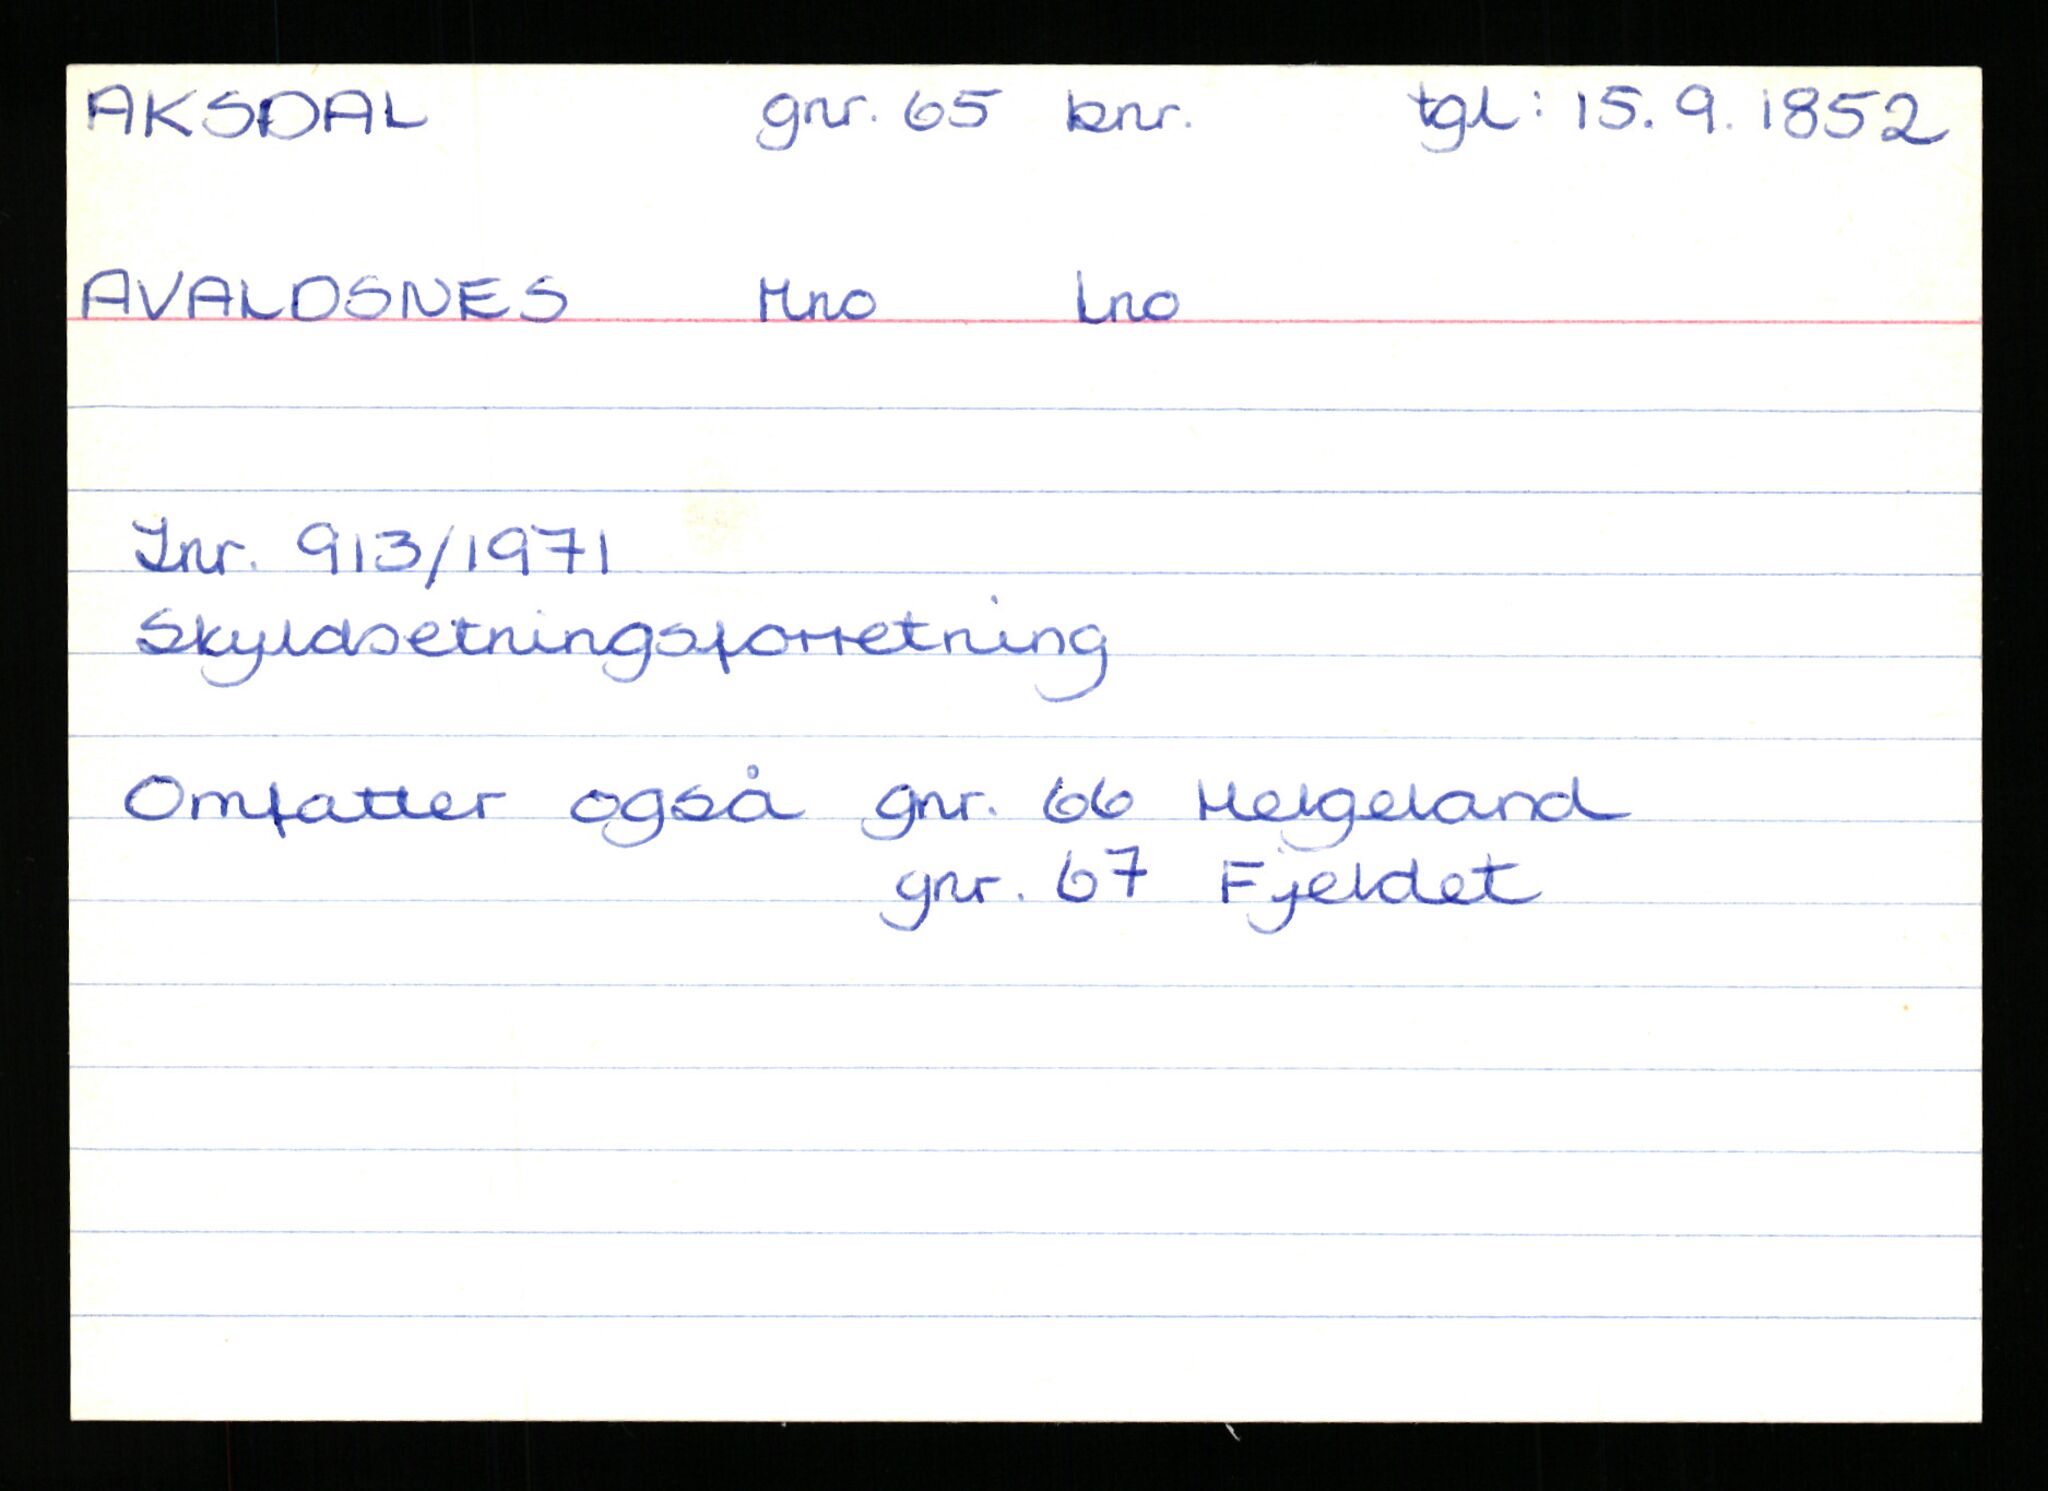 AKSDAL gnr. 65 bnr. tgl: 15. 9. 1852
AVALDSNES Mno Lno
Jnr. 913/1971
Skyldsetningsforretning
Omfatter også gnr. 66 Helgeland
gnr. 67 Fjeldet